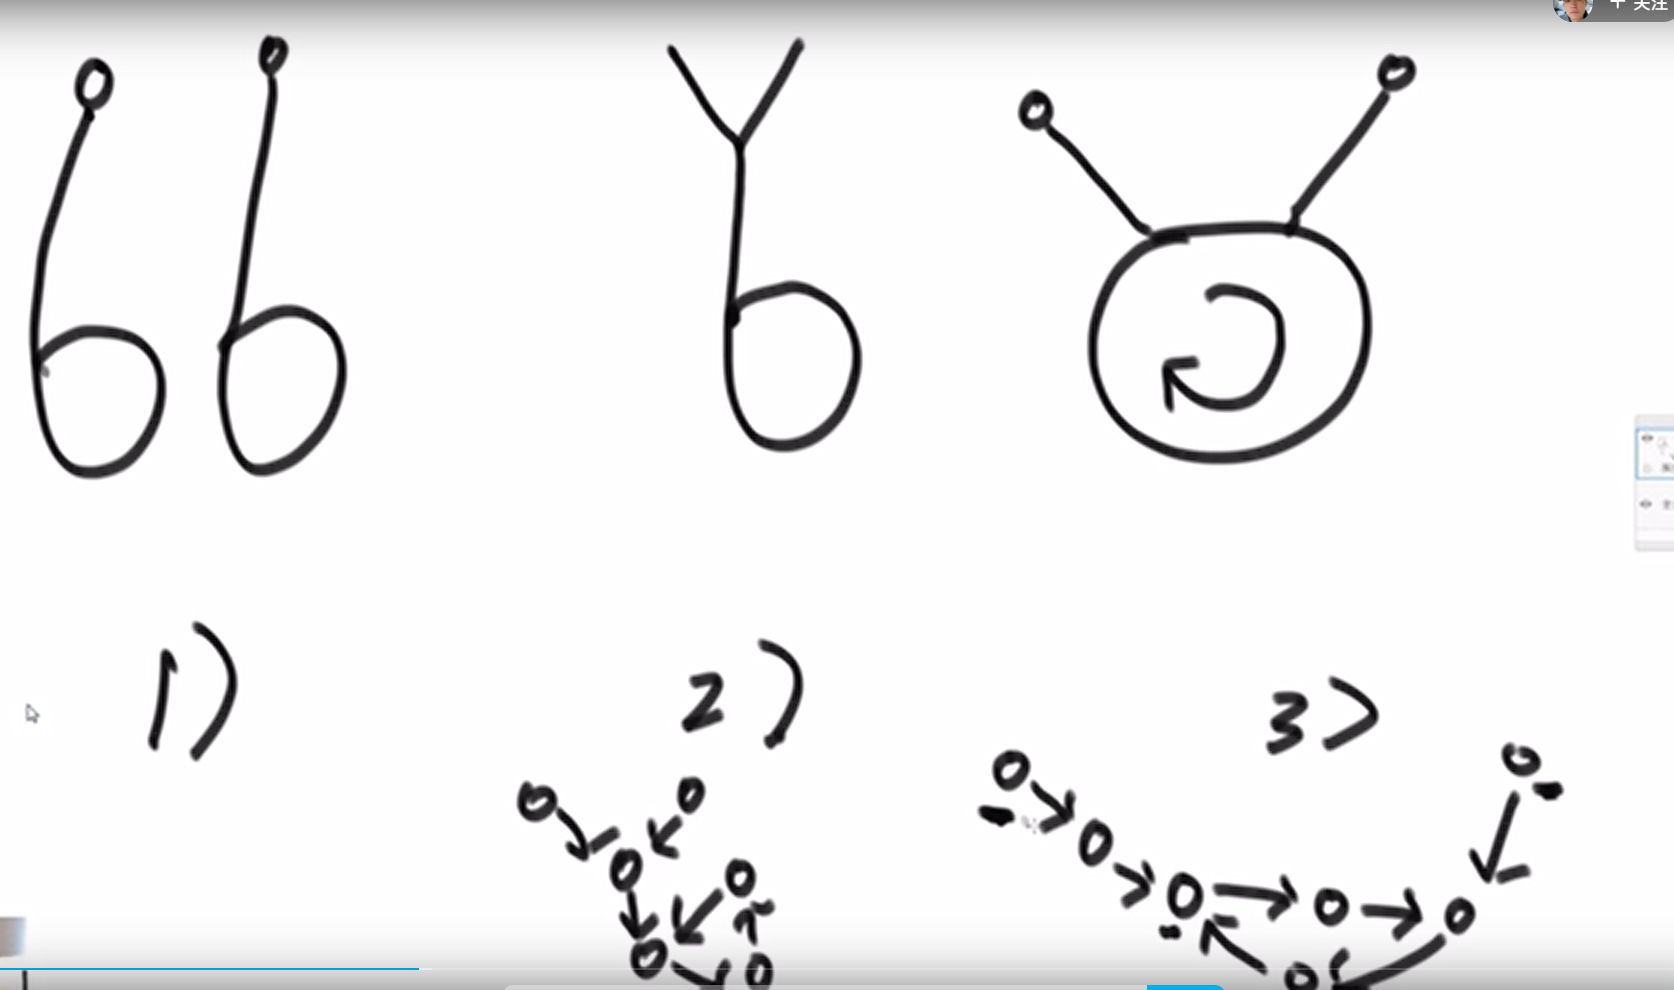 + 关注
1)
2)
3)